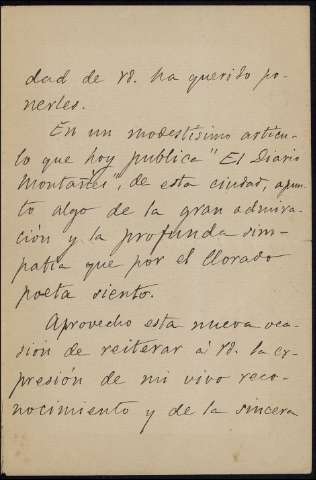 dad de Vd. ha querido po-
nerles.
En un modestísimo artícu-
lo que hoy publica "El Diario
Montañés", de esta ciudad, apun-
to algo de la gran admira-
ción y la profunda sim-
patía que por el llorado
poeta siento.
Aprovecho esta nueva oca-
sión de reiterar á Vd. la ex-
presión de mi vivo reco-
nocimiento y de la sincera